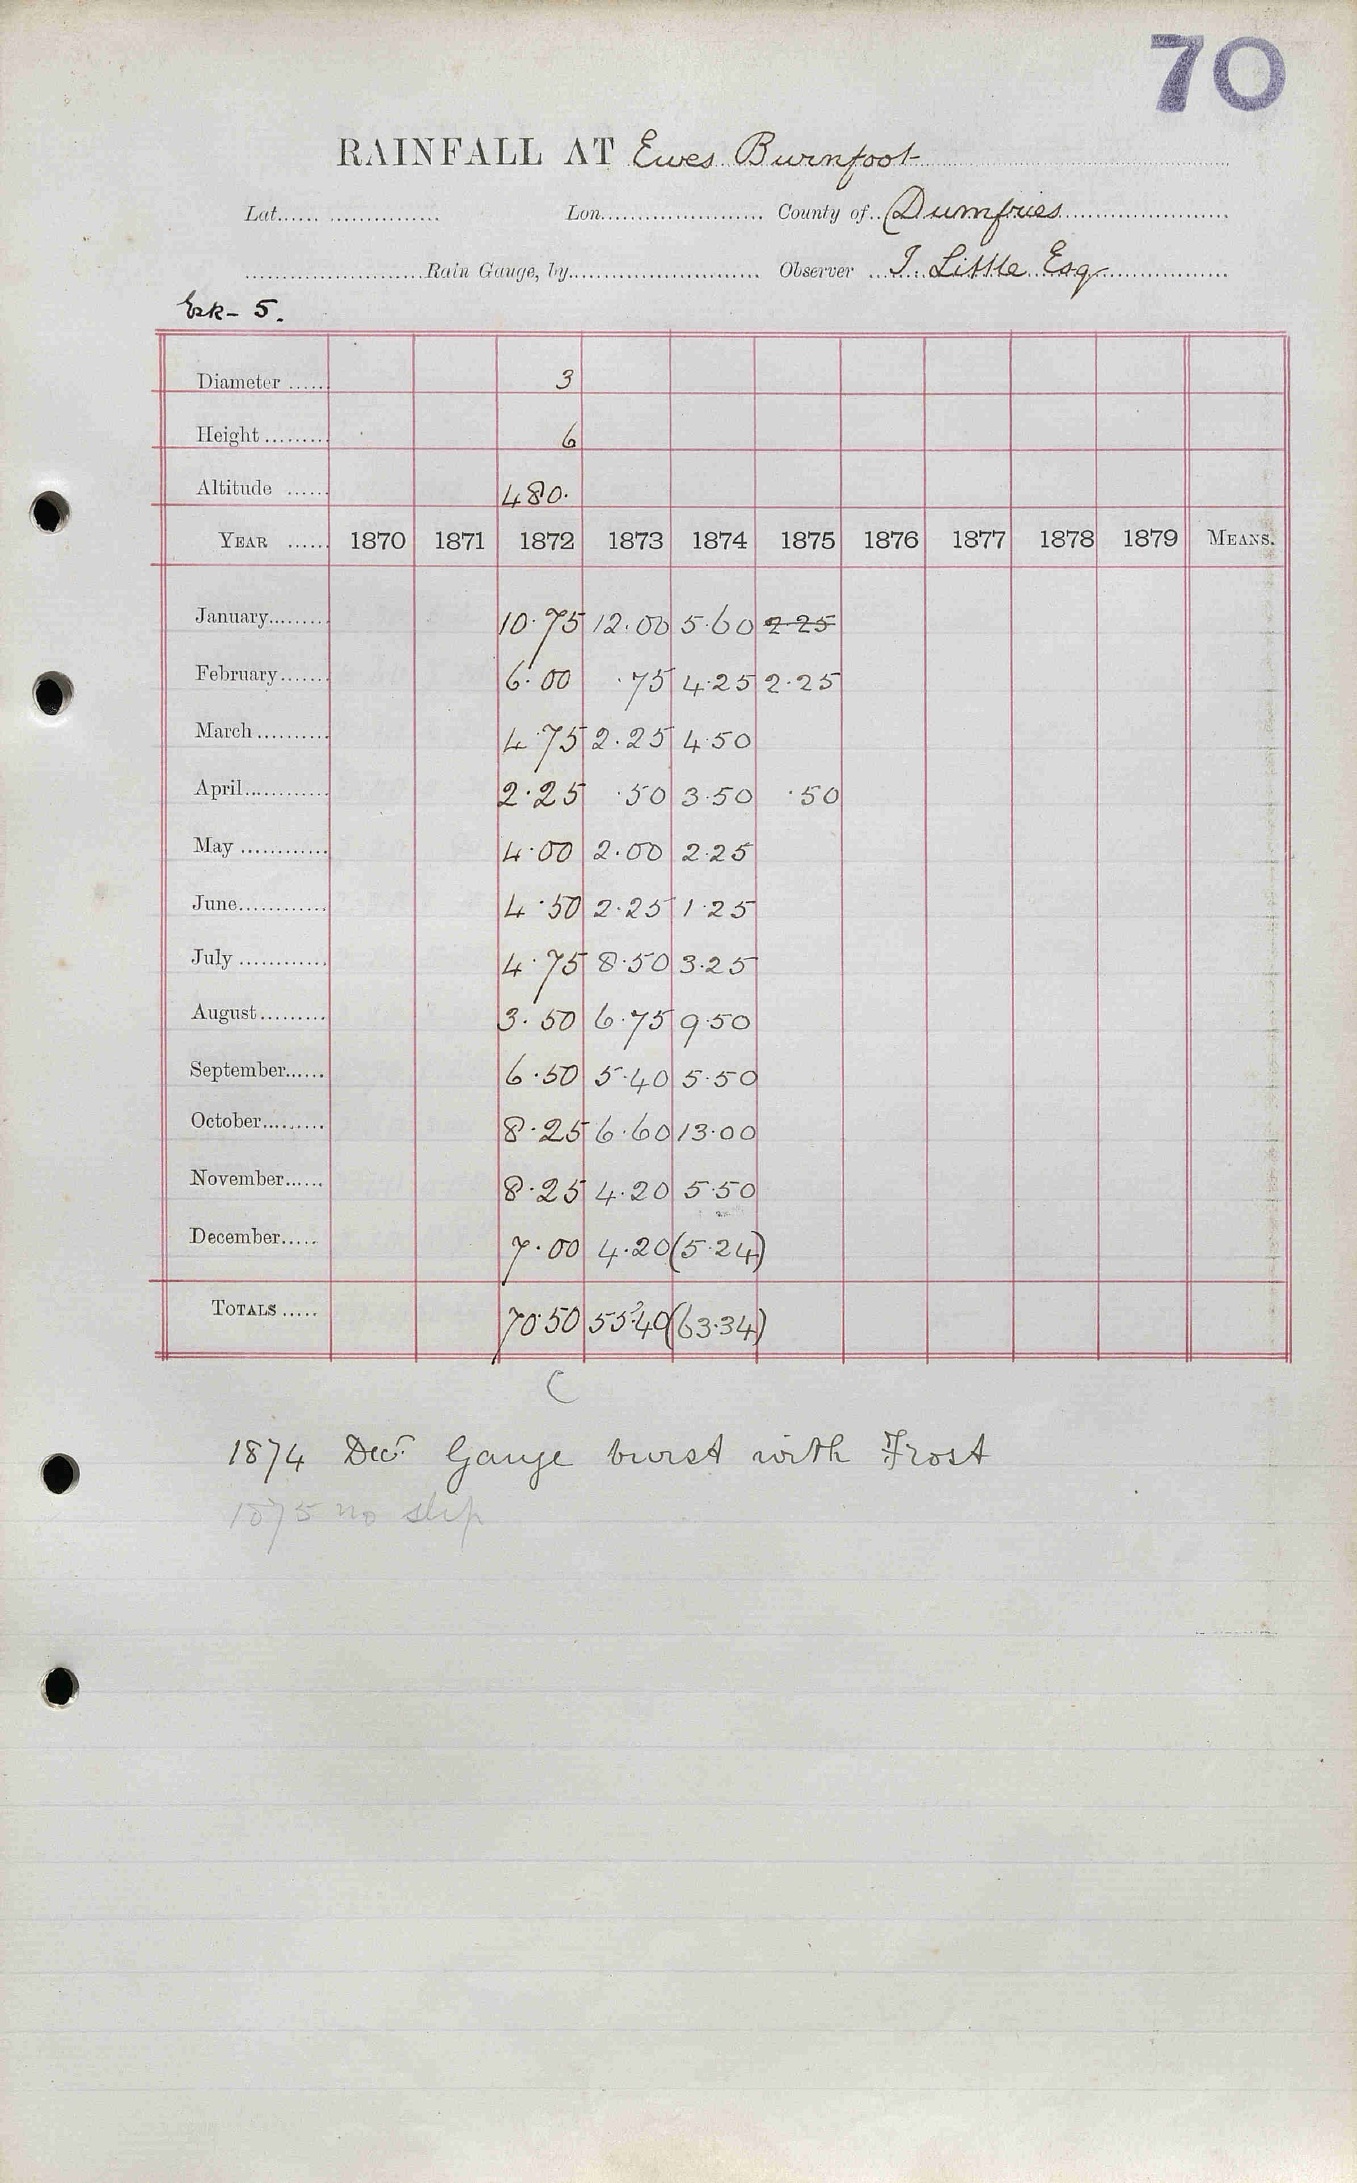 70
RAINFALL AT Ewes Burnfoot
Lat. Lon. County of Dumfries
Rain Gauge, by Observer J. Little Esq
Esk - 5.
Diameter 3
Height 6
Altitude 480.
YEAR 1870 1871 1872 1873 1874 1875 1876 1877 1878 1879 MEANS.
January 10.75 12.00 5.60 2.25
February 6.00 .75 4.25 2.25
March 4.75 2.25 4.50
April 2.25 .50 3.50 .50
May 4.00 2.00 2.25
June 4.50 2.25 1.25
July 4.75 8.50 3.25
August 3.50 6.75 9.50
September 6.50 5.40 5.50
October 8.25 6.60 13.00
November 8.25 4.20 5.50
December 7.00 4.20 (5.24)
TOTALS 70.50 55.40 (63.34)
C
1874 Decr. Gauge burst with Frost
1875 no slip